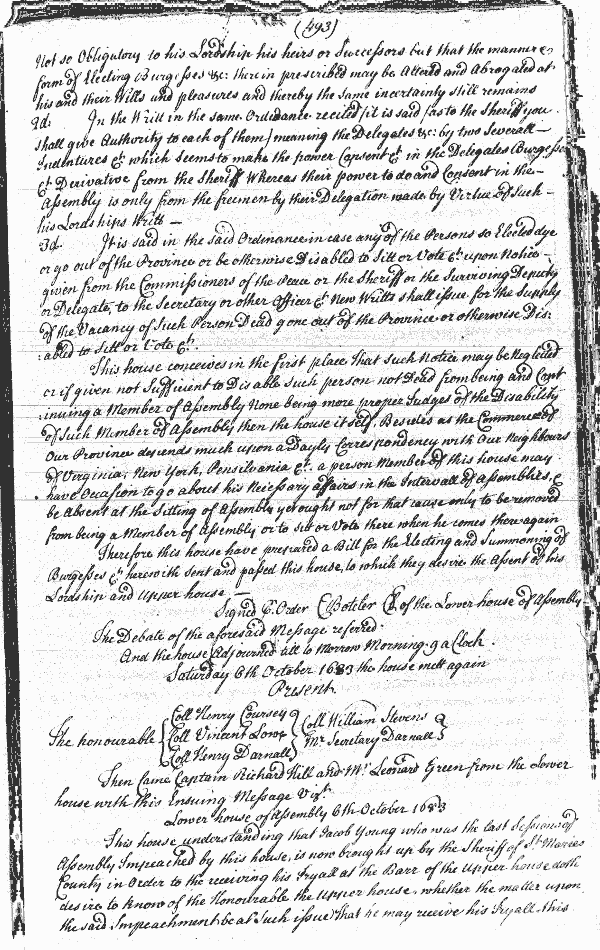 (493)
Not so Obligatory to his Lordship his heirs or Successors but that the manner &
form of Electing Burgesses &c: therein prescribed may be Altered and Abrogated at
his and their Wills and pleasures and thereby the same incertainty still remains
2d: In the Writt in the same Ordinance recited (it is said (as to the Sheriff you
shall give Authority to each of them) meaning the Delegates &c: by two Severall
Indentures &c which seems to make the power Consent &c in the Delegates (Burgesses
&c Derivative from the Sheriff Whereas their power to do and Consent in the
Assembly is only from the freemen by their Delegation made by Virtue of Such
his Lordships Writts
3d It is said in the said Ordinance in case any of the Persons so Elected dye
or go out of the Province or be otherwise Disabled to Sitt or Vote &c upon Notice
given from the Commissioners of the Peace or the Sheriff or the Surviving Deputy
or Delegate, to the Secretary or other Officer &c New Writts shall issue for the Supply
of the Vacancy of Such Person Dead gone out of the Province or otherwise Dis:
:abled to Sitt or Vote &c:
This house conceives in the first place That such Notice may be Neglected
or if given not Sufficient to Disable such person not Dead from being and Cont
:inuing a Member of Assembly None being more proper Judges of the Disability
of Such Member of Assembly then the house it self. Besides as the Commerce of
Our Province depends much upon a Dayly Correspondency with Our Neighbours
of Virginia, New York, Pensilvania &c. a person Member of this house may
have Occasion to go about his Necessary affairs in the Intervall of Assemblies, &
be Absent at the Sitting of Assembly yet ought not for that cause only to be removed
from being a Member of Assembly or to Sit or Vote there when he comes there again
Therefore this house have prepared a Bill for the Electing and Summoning of
Burgesses &c herewith sent and passed this house, to which they desire the Assent of his
Lordship and Upper house.
Signed P. Order C Boteler Cl. of the Lower house of Assembly
The Debate of the aforesaid Message referred.
And the house Adjourned till to Morrow Morning 9 a Clock.
Saturday 6th October 1683 the house mett again
Present.
The honourable
Coll Henry Coursey
Coll Vincent Lowe
Coll Henry Darnall
Coll William Stevens
Mr Secretary Darnall
Then Came Captain Richard Hill and Mr Leonard Green from the Lower
house with this Insuing Message Vizt.
Lower house of Assembly 6th October 1683
This house understanding that Jacob Young who was the last Sessions of
Assembly Impeached by this house, is now brought up by the Sheriff of St Maries
County in Order to the receiving his Tryall at the Barr of the Upper house doth
desire to know of the Honourable the Upper house, whether the matter upon
the said Impeachment be at Such issue that he may receive his Tryall this